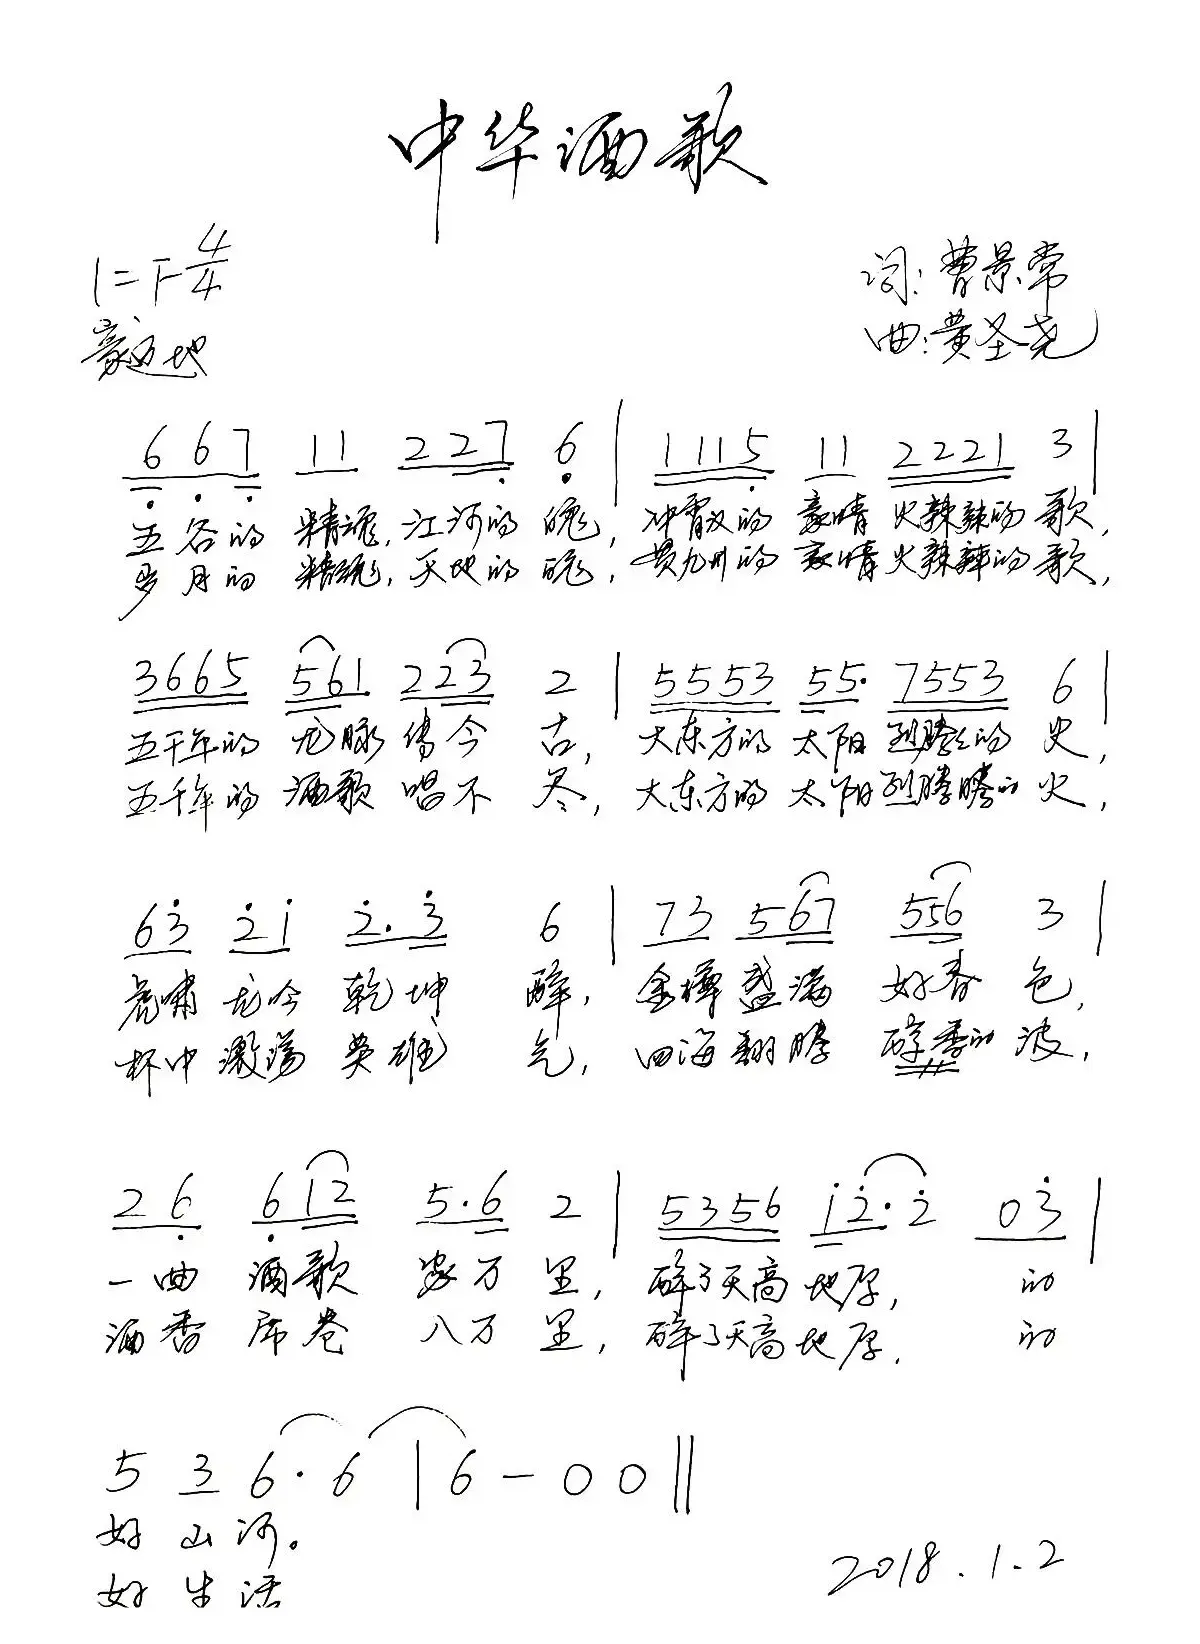 中华酒歌
1=F 4/4
词:曹景常
豪迈地
曲:黄圣尧
6 6 7 11 227 6 | 1115 11 2221 3 |
五谷的 精魂,江河的 魄, 的 豪情 火辣辣的 歌,
岁月的 精魂,天地的 魄, 贯九州的 豪情 火辣辣的 歌,
3665 561 223 2 | 5553 55· 7553 6 |
五千年的 龙脉 传今 古, 大东方的 太阳 烈腾腾的 火,
五千年的 酒歌 唱不 尽, 大东方的 太阳 烈腾腾的 火,
63 21 2.3 6 | 73 567 556 3 |
虎啸 龙吟 乾坤 醉, 金樽 盛满 好春 色,
杯中 激荡 英雄 气, 四海 翻腾 醇香的 波,
26 612 5.6 2 | 5356 12·2 03 |
一曲 酒歌 万 里, 醉了天高 地厚, 的
酒香 席卷 八万 里, 醉了天高 地厚. 的
5 3 6· 6 | 6 - 0 0 ‖
好 山 河。
好 生 活
2018.1.2